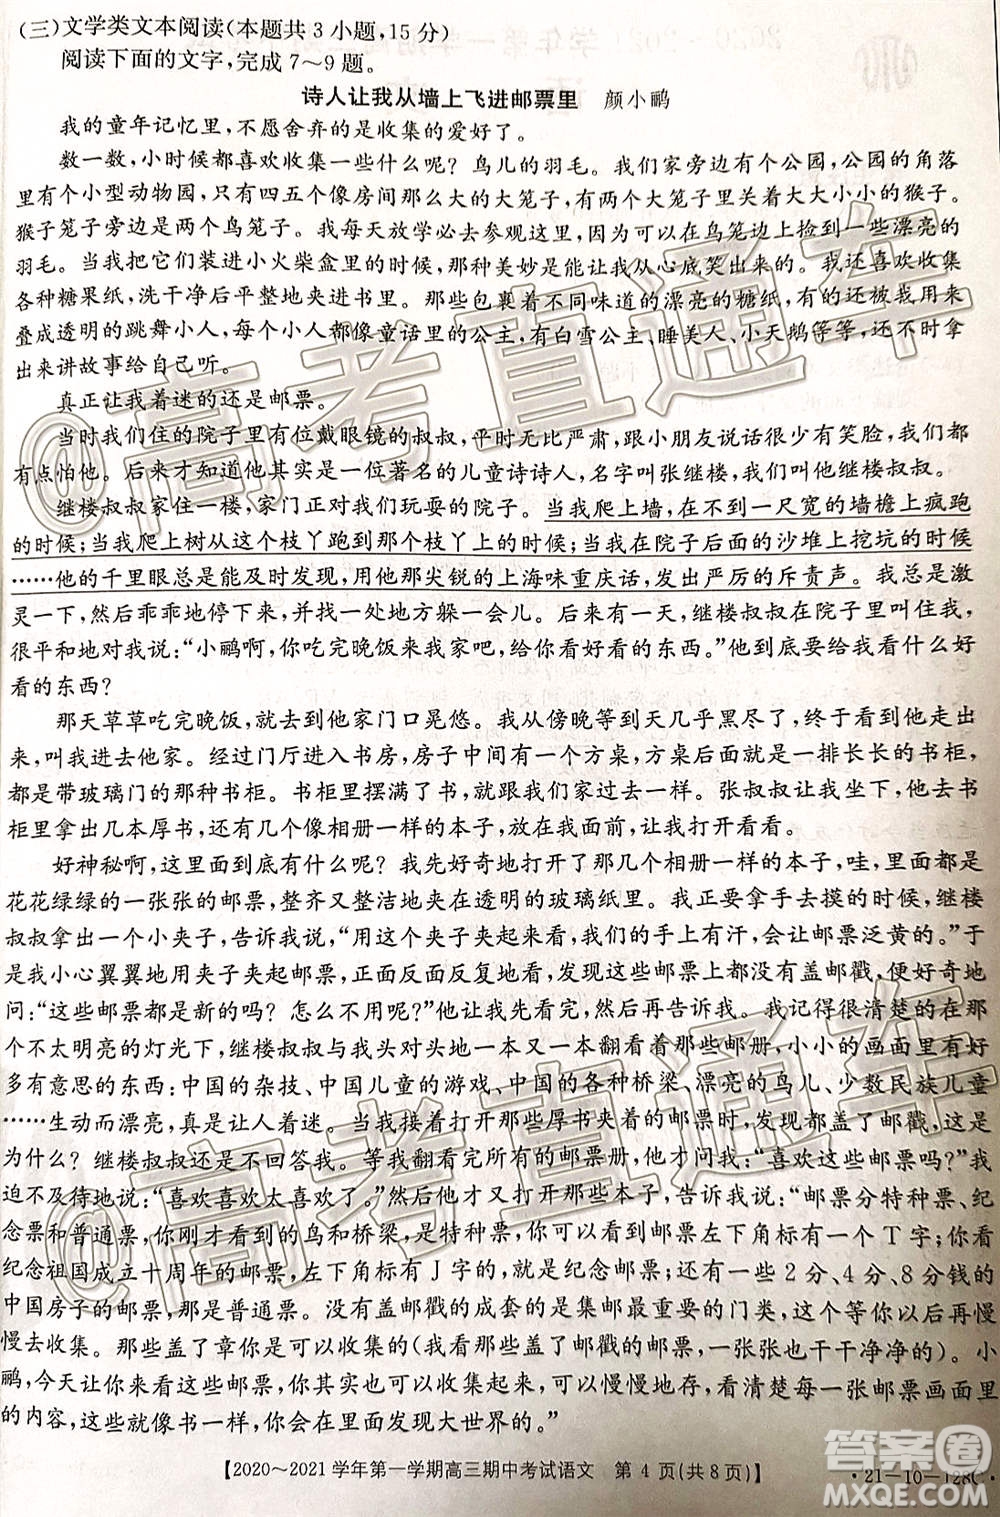 (三)文学类文本阅读(本题共3小题,15分)
阅读下面的文字,完成7～9题。
诗人让我从墙上飞进邮票里 颜小鹂
我的童年记忆里,不愿舍弃的是收集的爱好了。
数一数,小时候都喜欢收集一些什么呢？鸟儿的羽毛。我们家旁边有个公园,公园的角落
里有个小型动物园,只有四五个像房间那么大的大笼子,大笼子里是大大小小的猴子。
猴子笼子旁边是两个鸟笼子。我每天放学必去参观这里,因为可以在鸟笼边上捡到一些漂亮的
羽毛。当我把它们装进小火柴盒里的时候,那种美妙是能让我从心底笑出来的。我还喜欢收集
各种糖果纸,洗干净后平整地夹进书里。那些包裹着不同味道的漂亮的糖纸,有的还被我用来
叠成透明的跳舞小人,每个小人都像童话里的公主,有白雪公主、睡美人、小天鹅等等,还可以拿
出来讲故事给自己听。
真正让我着迷的还是邮票。
当时我们住的院子里有位戴眼镜的叔叔,平时无比严肃,跟小朋友说话很少有笑脸,我们都
有点怕他。后来才知道他其实是一位著名的儿童诗诗人,名字叫张继楼,我们叫他继楼叔叔。
继楼叔叔家住一楼,家门正对我们玩耍的院子。当我爬上墙,在不到一尺宽的墙檐上疯跑
的时候;当我爬上树从这个枝丫跑到那个枝丫上的时候;当我在院子后面的沙堆上挖坑的时候
……他的千里眼总是能及时发现,用他那尖锐的上海味重庆话,发出严厉的斥责声。我总是激
灵一下,然后乖乖地停下来,并找一处地方躲一会儿。所以有一天,继楼叔叔在院子里叫住我,
很平和地对我说:“小鹂啊,你吃完晚饭来我家吧,给你看好看的东西。”他到底要给我看什么好
看的东西？
那天草草吃完晚饭,就去到他家门口晃悠。我从傍晚等到天几乎黑尽了,终于看到他出
来,叫我进去他家。经过门厅进入书房,房子中间是一个方桌,方桌后面就是一排长长的书柜,
都是带玻璃门的那种书柜。书柜里摆满了书,就跟我们家里一样。张叔叔让我坐下,他去书
柜里拿出了几本厚书,还有几个像相册一样的本子,放在我面前,让我打开看看。
好神秘啊,这里面到底有什么呢？我先好奇地打开了那几个相册一样的本子,哇,里面都是
花花绿绿的一张张的邮票,整齐又整洁地夹在透明的玻璃纸里。我正要拿手去摸的时候,继楼
叔叔拿出一个小夹子,告诉我说,“用这个夹子夹起来看,我们的手上有汗,会让邮票泛黄的。”于
是我小心翼翼地用夹子夹起邮票,正面反面反复地看,发现这些邮票上都没有盖邮戳,便好奇地
问:“这些邮票都是新的吗？怎么不用呢？”他让我先看完,再告诉我。我记得很清楚的是在那
个不太明亮的灯光下,继楼叔叔与我头对头地一本又一本翻看着那些邮册,小小的画面里有好
多有意思的东西:中国的杂技、中国儿童的游戏、中国的各种桥梁、漂亮的鸟儿、少数民族儿童
……生动而漂亮,真是让人着迷。当我接着打开那些厚书夹着的邮票时,发现都盖了邮戳,这是
为什么？继楼叔叔还是不回答我。等我翻看完所有的邮票册,他才问我:“喜欢这些邮票吗？”我
迫不及待地说:“喜欢喜欢太喜欢了。”然后他又重新打开那些本子,告诉我说:“邮票分特种票、纪
念票和普通票,你刚才看到的鸟和桥梁,是特种票,你看它们左下角标有一个T字;那些,你看,
纪念祖国成立十周年的邮票,左下角标有J字的,就是纪念邮票;还有一些2分、4分、8分钱的
中国房子的邮票,那是普通票。没有盖邮戳的成套的是集邮最重要的门类,这个你可以以后再慢
慢去收集。那些盖了章你可以收集的(我看那些盖了邮戳的邮票,一张张也干干净净的)。小
鹂,今天让你来看这些邮票,是想你也可以收集起来,慢慢地存,看清楚每一张邮票画面里
的内容,这些就像书一样,你会在里面发现大世界的。”
【2020～2021学年第一学期高三期中考试语文 第4页(共8页)】
·21-10-128C·
@高考直通车
@高考直通车
答案圈
MXQE.COM